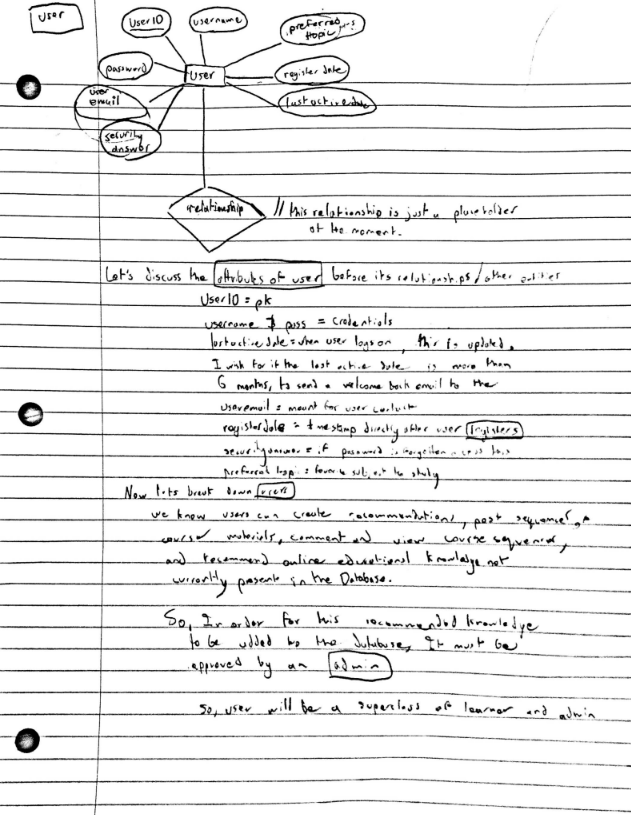 User
User ID
username
preferred
topic
password
User
register date
user
email
last active date
security
answer
relationship // this relationship is just a placeholder
at the moment.
Let's discuss the attributes of user before its relationships / other entities
User ID = pk
username & pass = credentials
last active date = when user logs on, this is updated.
I wish for if the last active date is more than
6 months, to send a welcome back email to the
user email = meant for user contact
register date = timestamp directly after user registers
security answer = if password is forgotten access this
preferred topic = favorite subject to study
Now lets break down users
we know users can create recommendations, post sequences,
course materials, comment and view course sequences,
and recommend online educational knowledge not
currently present in the Database.
So, In order for this recommended knowledge
to be added to the database, It must be
approved by an admin
So, user will be a superclass of learner and admin